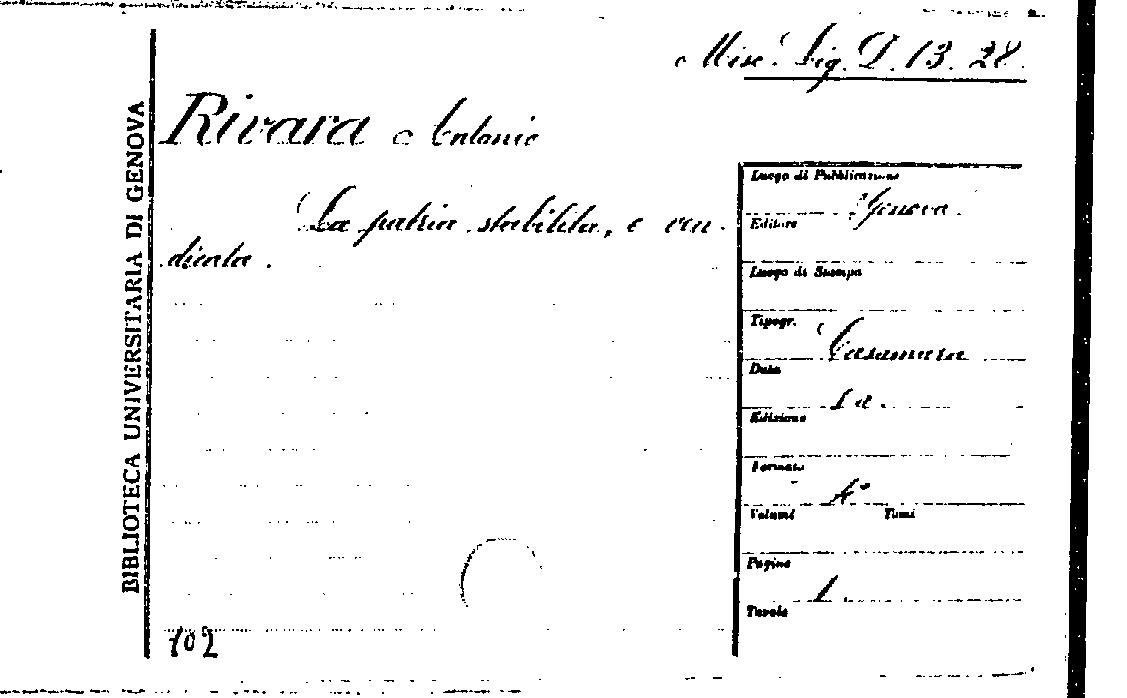 Misc. Lig. D. 13. 28.
BIBLIOTECA UNIVERSITARIA DI GENOVA
Rivara Antonio
La patria stabilita, e ven-
dicata.
Luogo di Pubblicazione
Genova.
Editore
Luogo di Stampa
Tipogr.
Casamara
Data
s. a.
Edizione
Formato
4°
Volumi Tomi
Pagine
1.
Tavole
102